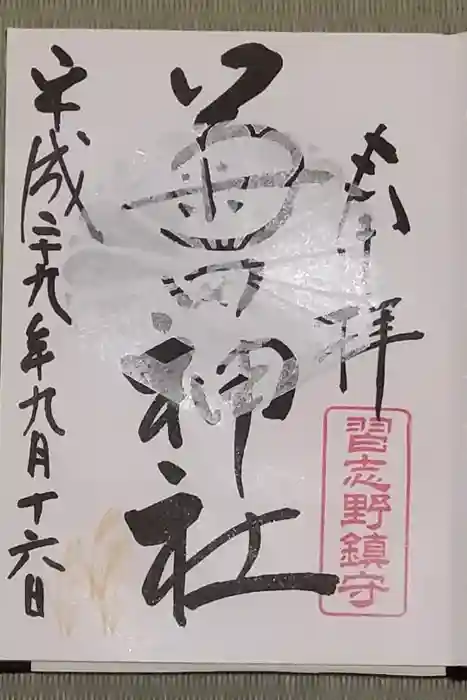 奉拝
神社
習志野鎮守
平成二十九年九月十六日